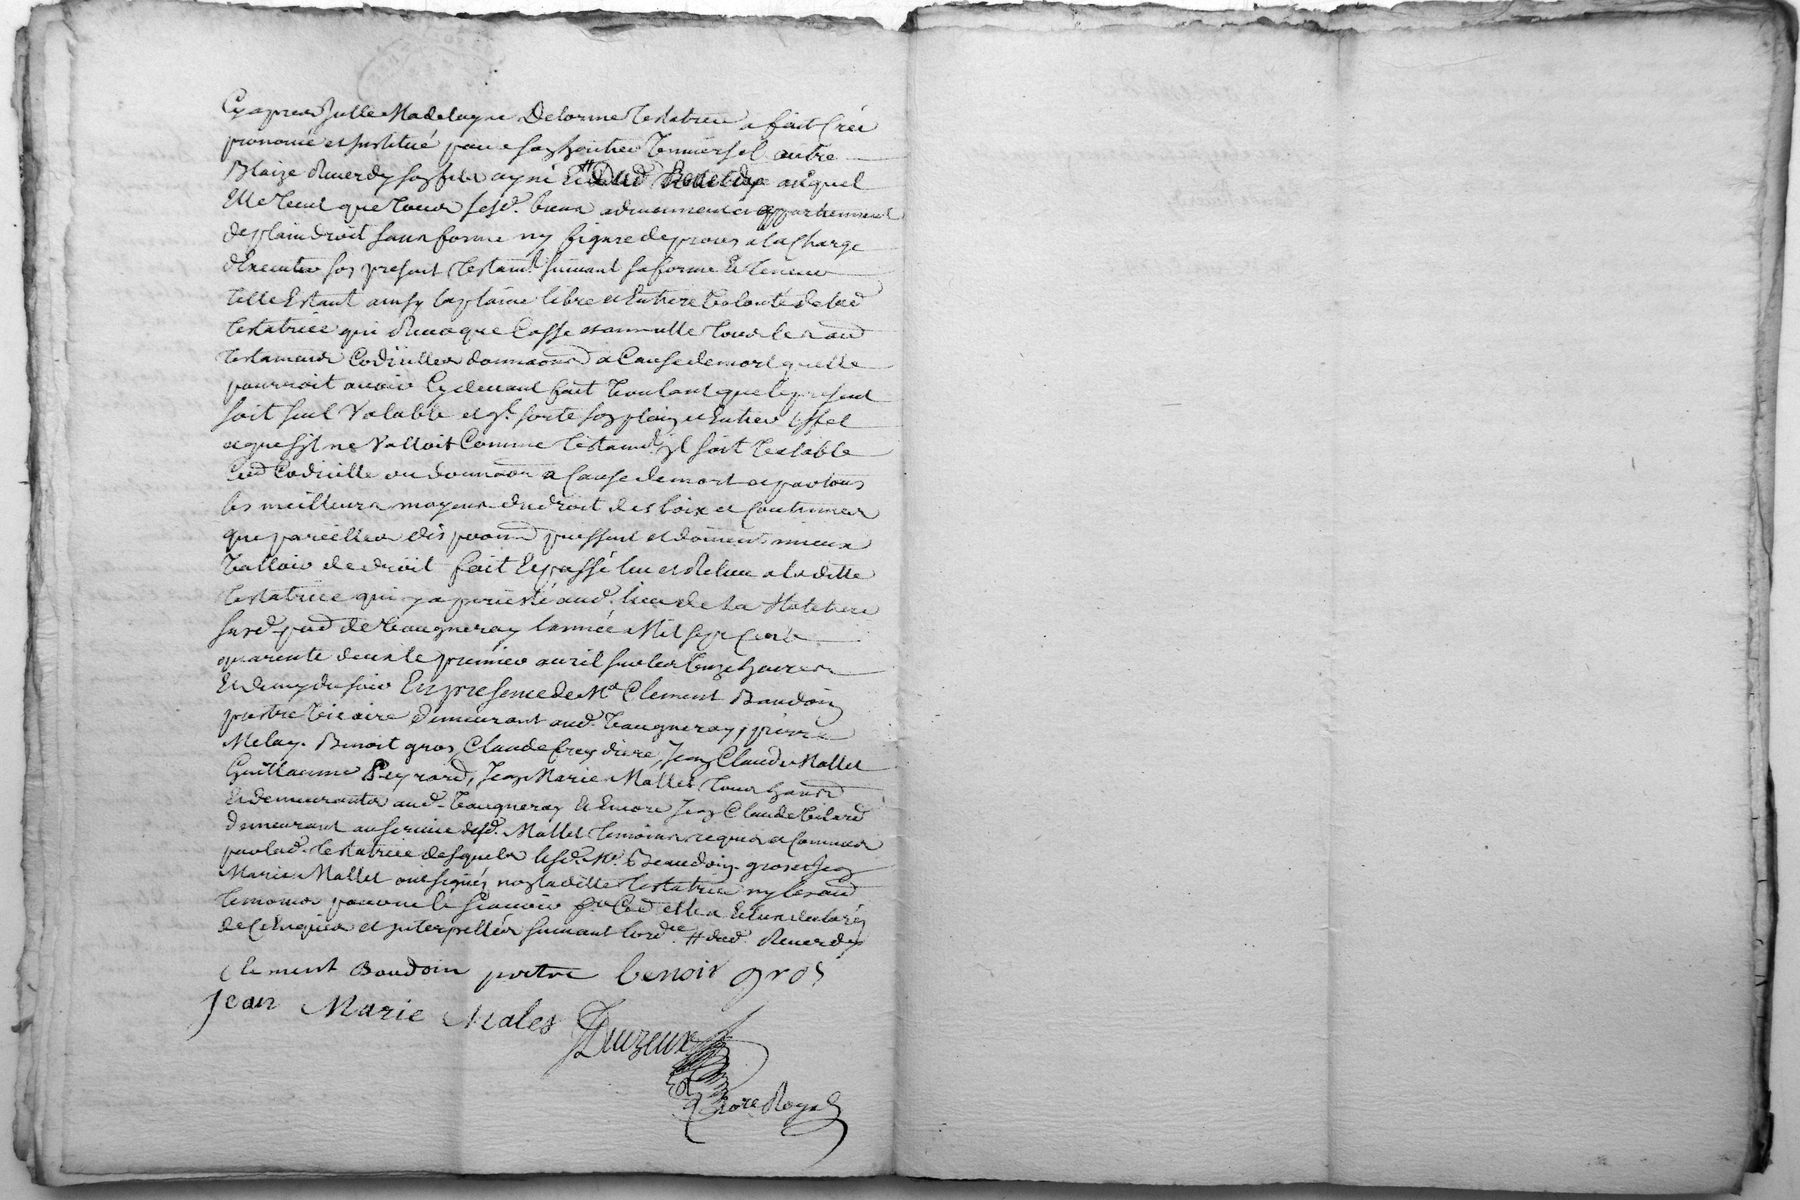 Cyapres Jcelle Madelayne Delorme testatrice a fait Créé
promomé et Jnstitué pour son heritier Vniversel autre
Blaize Reverdy son fils ayné auquel
Elle Veut que tous sesd. biens adviennent et appartiennent
de plain droit sans forme ny figure de proces a la Charge
dExecuter son present testamt. suivant sa forme Et teneur
telle Estant ainsy la plaine libre et Entiere Volonté de lad
testatrice qui Revoque Casse et annulle tous les aud
testamens Codicilles donnaons a Cause de mort quelle
pourroit avoir Cydevant fait Voulant que le present
soit seul Valable et qil sorte son plain et Entier Effet
et que sil ne Valloit Comme testamt. jl soit Valable
Codicille ou donnaon a Cause de mort et par tous
les meilleurs moyens du droit des loix et Coutumes
que pareilles dispoons puissent et doivent mieux
Valloir de droit fait Et passé leu et Releu a laditte
testatrice qui y a perisisté aud. lieu de La
susd. de Vaugneray lannée Mil sept Cent
quarente deux le premier avril sur les Onze heures
Et demy du soir En presence de Me Clement Baudoin
prestre Vicaire demeurant aud. Vaugneray, pierre
Melay. Benoit gros, Claude freydiere, Jean Claude Mallet
Guillaume Peyrard, Jean Marie Mallet tous
Et demeurants aud. Vaugneray Et Encore Jean Claude
demeurant au service dud. Mallet temoins requis et Connus
par lad. testatrice desquels lesd. Me. Beaudoin gros et Jean
Marie Mallet ont signés non laditte testatrice ny les aud
temoins pour ne le sçavoir
de Ce Enquis et jnterpellés suivant lord.ce # dud. Reverdy
Clement Baudoin prestre benoit gros
Jean Marie Males Duzeux
Nore Royal